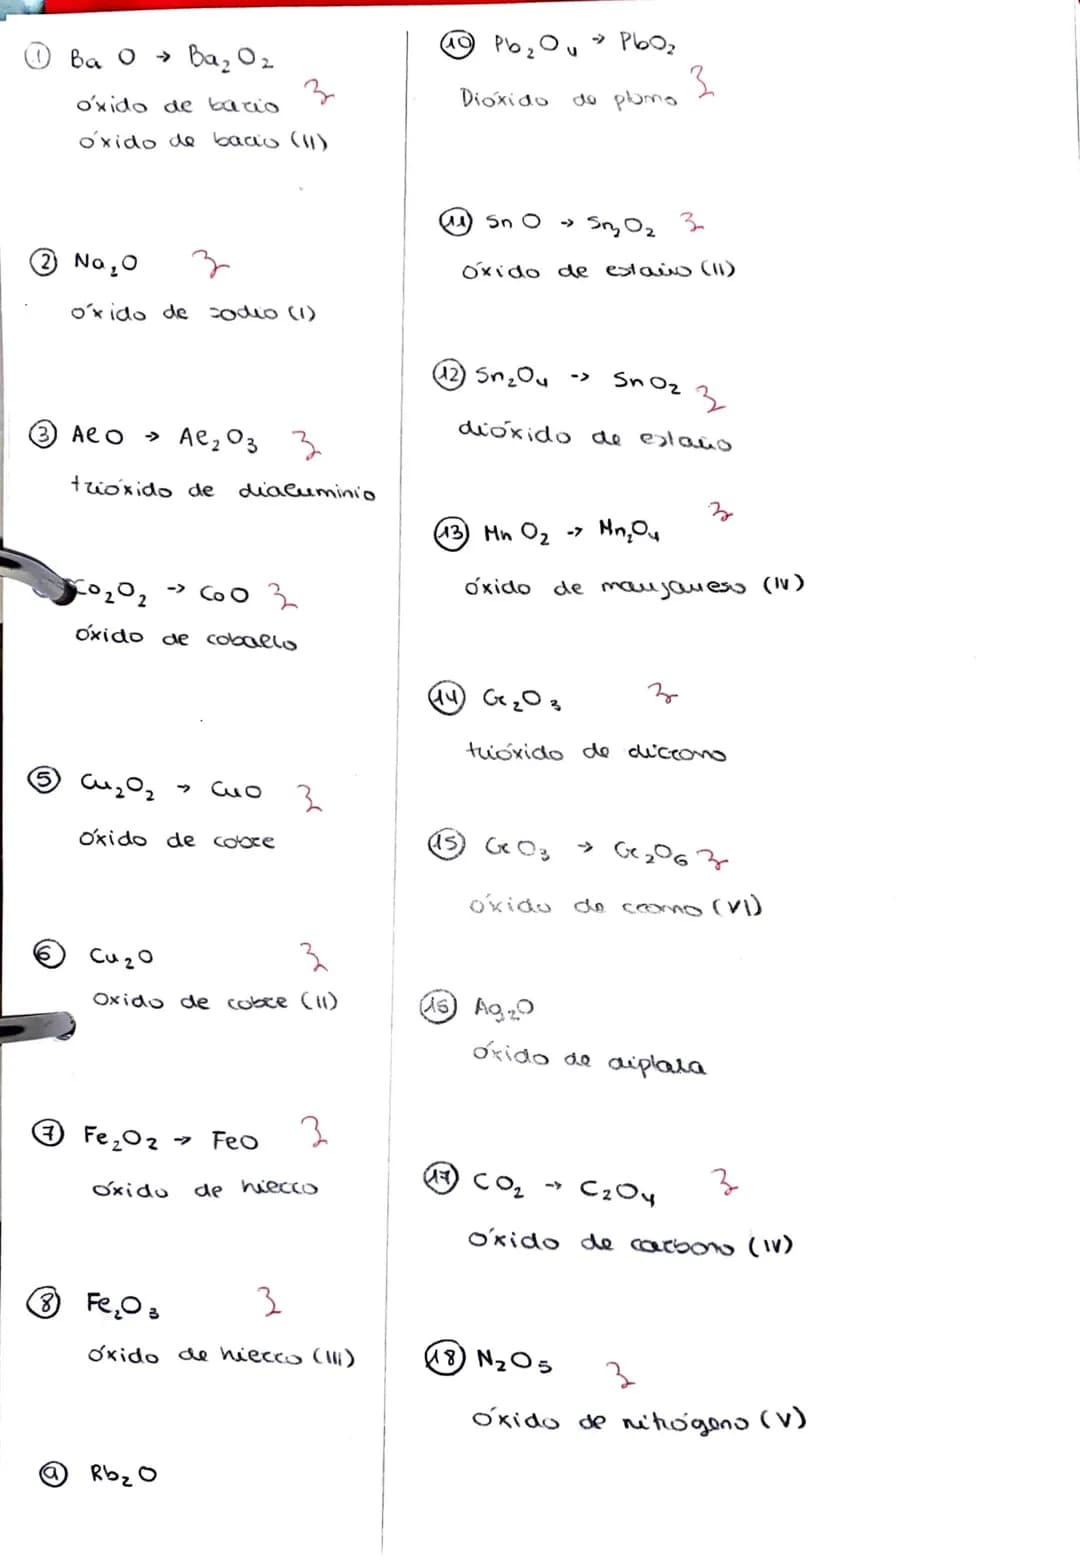 ① Ba O → Ba₂O₂
óxido de bario
óxido de bario (II)
② Na₂O
óxido de sodio (I)
③ AlO → Al₂O₃
trióxido de dialuminio
Co₂O₂ → CoO
óxido de cobalto
⑤ Cu₂O₂ → CuO
óxido de cobre
⑥ Cu₂O
Oxido de cobre (II)
⑦ Fe₂O₂ → FeO
óxido de hierro
⑧ Fe₂O₃
óxido de hierro (III)
⑨ Rb₂O
⑩ Pb₂O₄ → PbO₂
Dióxido de plomo
⑪ SnO → Sn₂O₂
óxido de estaño (II)
⑫ Sn₂O₄ -> SnO₂
dióxido de estaño
⑬ MnO₂ -> Mn₂O₄
óxido de manganeso (IV)
⑭ Cr₂O₃
trióxido de dicromo
⑮ CrO₃ → Cr₂O₆
óxido de cromo (VI)
⑯ Ag₂O
óxido de diplata
⑰ CO₂ → C₂O₄
óxido de carbono (IV)
⑱ N₂O₅
óxido de nitrógeno (V)